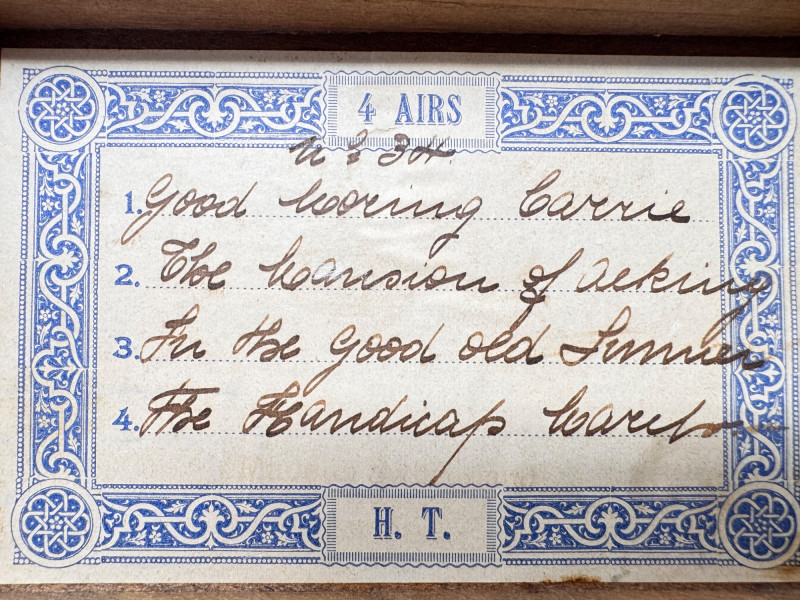 4 AIRS
N° 34.
1. Good Moring Carrie
2. The Mansion of Aeking
3. In the Good old Summer
4. The Handicap March
H. T.